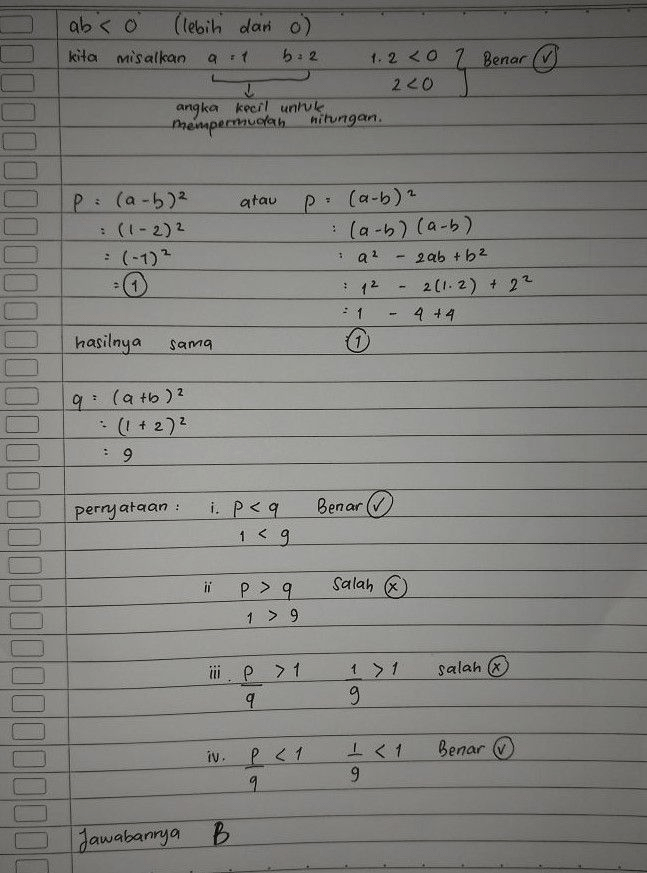 ab < 0 (lebih dari 0)
kita misalkan a = 1 b = 2 1.2 < 0 } Benar (✓)
2 < 0
angka kecil untuk
mempermudah hitungan.
p = (a-b)² atau p = (a-b)²
= (1-2)² = (a-b) (a-b)
= (-1)² = a² - 2ab + b²
= 1 = 1² - 2(1.2) + 2²
= 1 - 4 + 4
hasilnya sama = 1
q = (a+b)²
= (1+2)²
= 9
pernyataan : i. p < q Benar (✓)
1 < 9
ii p > q Salah (x)
1 > 9
iii. p/q > 1 1/9 > 1 salah (x)
iv. p/q < 1 1/9 < 1 Benar (✓)
Jawabannya B